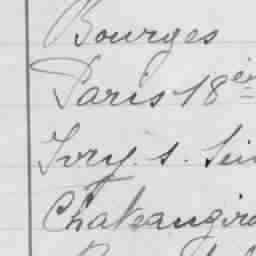 Bourges
Paris 18è
Ivry s. Sei
Chateaugiro